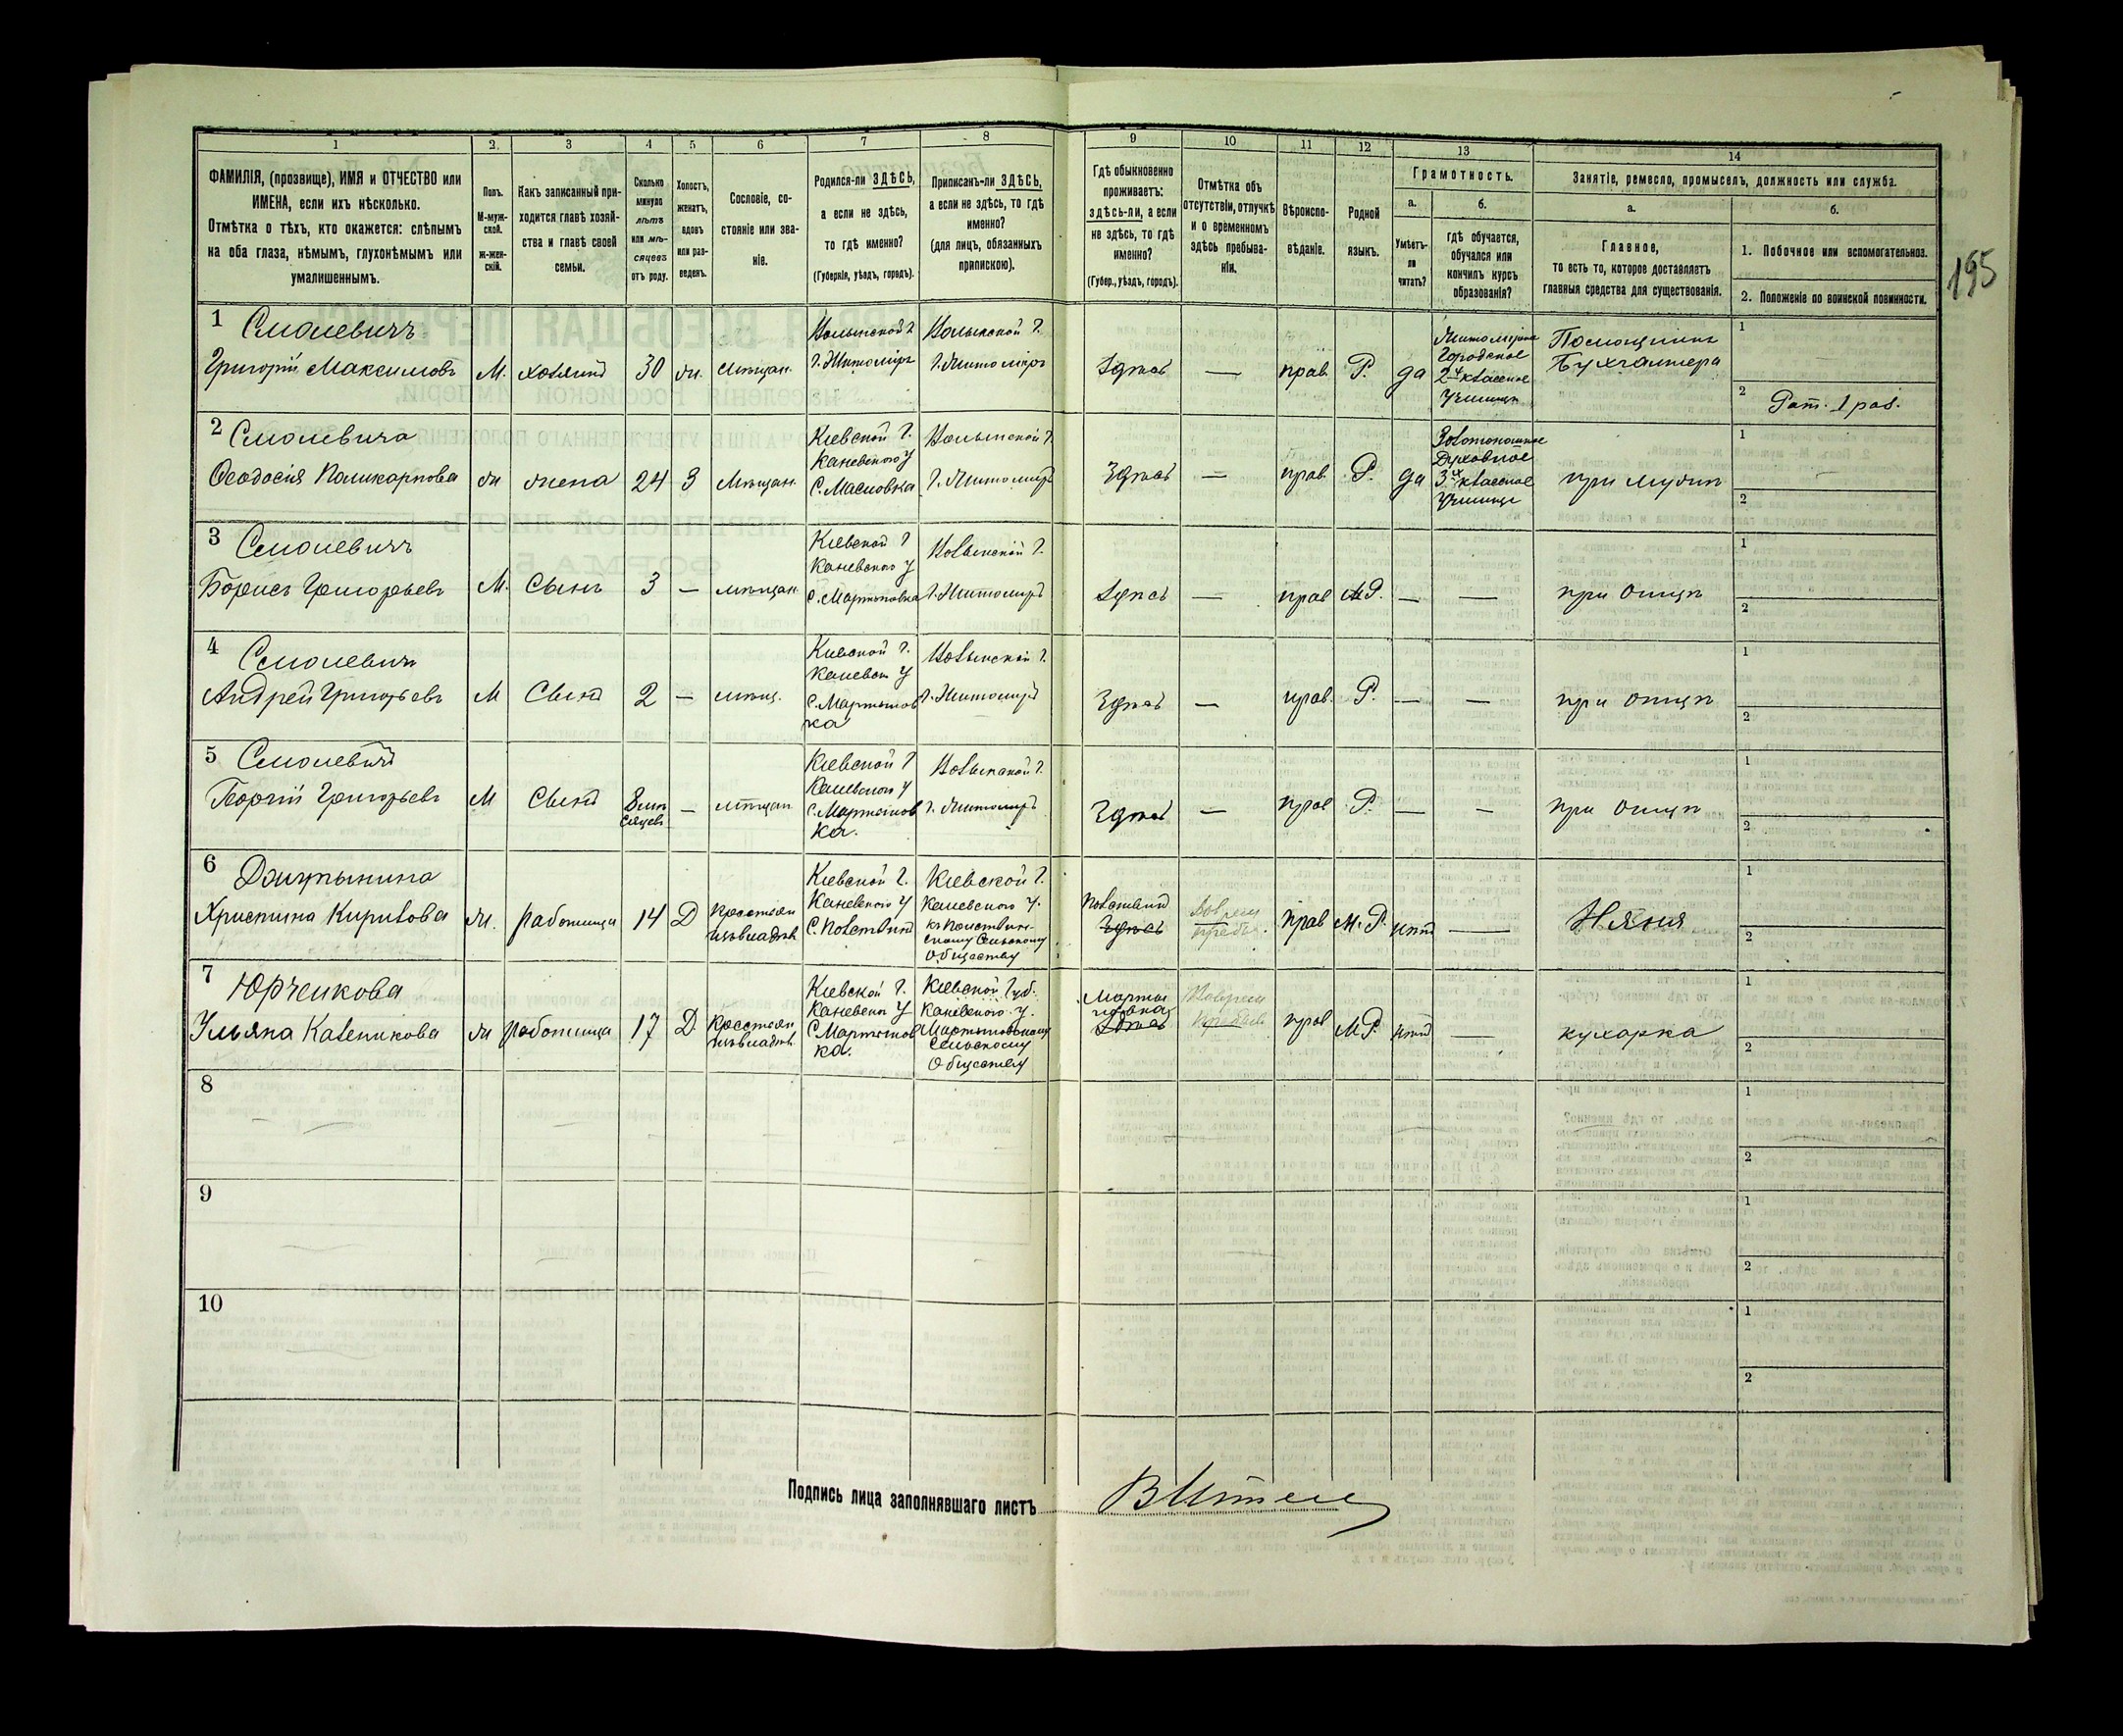 1
2
3
4
5
6
7
8
9
10
11
12
13
14
ФАМИЛІЯ, (прозвище), ИМЯ и ОТЧЕСТВО или
ИМЕНА, если ихъ нѣсколько.
Отмѣтка о тѣхъ, кто окажется: слѣпымъ
на оба глаза, нѣмымъ, глухонѣмымъ или
умалишеннымъ.
Полъ.
М-муж-
ской.
ж-жен-
скій.
Какъ записанный при-
ходится главѣ хозяй-
ства и главѣ своей
семьи.
Сколько
минуло
лѣтъ
или мѣ-
сяцевъ
отъ роду.
Холостъ,
женатъ,
вдовъ
или раз-
веденъ.
Сословіе, со-
стояніе или зва-
ніе.
Родился-ли ЗДѢСЬ,
а если не здѣсь,
то гдѣ именно?
(Губернія, уѣздъ, городъ).
Приписанъ-ли ЗДѢСЬ,
а если не здѣсь, то гдѣ
именно?
(для лицъ, обязанныхъ
припискою).
Гдѣ обыкновенно
проживаетъ:
здѣсь-ли, а если
не здѣсь, то гдѣ
именно?
(Губер., уѣздъ, городъ).
Отмѣтка объ
отсутствіи, отлучкѣ
и о временномъ
здѣсь пребыва-
ніи.
Вѣроиспо-
вѣданіе.
Родной
языкъ.
Грамотность.
а.
Умѣетъ-
ли
читать?
б.
гдѣ обучается,
обучался или
кончилъ курсъ
образованія?
Занятіе, ремесло, промыселъ, должность или служба.
а.
Главное,
то есть то, которое доставляетъ
главныя средства для существованія.
б.
1. Побочное или вспомогательное.
2. Положеніе по воинской повинности.
195
1
Григорій Максимовъ
М.
хозяинъ
30
ж.
мѣщан.
Волынской г.
г. Житоміръ
Волынской г.
г. Житоміръ
Здѣсь
—
прав.
Р.
да
Городское
2х классное
Помощникъ
Бухгалтера
1
2 Рат. 1 раз.
2
Феодосія Поликарпова
ж
жена
24
З
Мѣщан.
Кіевской г.
Каневского у
С. Масловка
Волынской г.
г. Житоміръ
Здѣсь
—
прав.
Р.
да
Духовное
3х классное
Училище
при мужѣ
1
2
3
Борисъ Григорьевъ
М.
Сынъ
3
—
мѣщан.
Кіевской г
Каневского у
С. Мартыновка
Волынской г.
г. Житоміръ
Здѣсь
—
прав
—
—
при отцѣ
1
2
4
Андрей Григорьевъ
М
Сынъ
2
—
мѣщ.
Кіевской г.
С. Мартынов
ка
Волынской г.
г. Житоміръ
Здѣсь
—
прав.
Р.
—
—
при отцѣ
1
2
5
Георгій Григорьевъ
М
Сынъ
8 мѣ
сяцевъ
—
мѣщан
Кіевской г
Каневского у
С. Мартынов
ка.
Волынской г.
г. Житоміръ
Здѣсь
—
прав
Р.
—
—
при отцѣ
1
2
6
Христина Кирилова
ж.
работница
14
Д
Крестьян
Кіевской г.
Каневского у
Кіевской г.
Каневского у.
Сельскому
Обществу
Здѣсь
прав
М.Р.
нѣтъ
—
Няня
1
2
7
Юрченкова
Ульяна Каленикова
ж
работница
17
Д
Крестьян
Кіевской г.
Каневского у
С. Мартынов
ка.
Кіевской Губ.
Каневского у.
Мартыновскому
Сельскому
Обществу
Марты
новка
Здѣсь
прав
М.Р.
нѣтъ
—
кухарка
1
2
8
1
2
9
1
2
10
1
2
Подпись лица заполнявшаго листъ